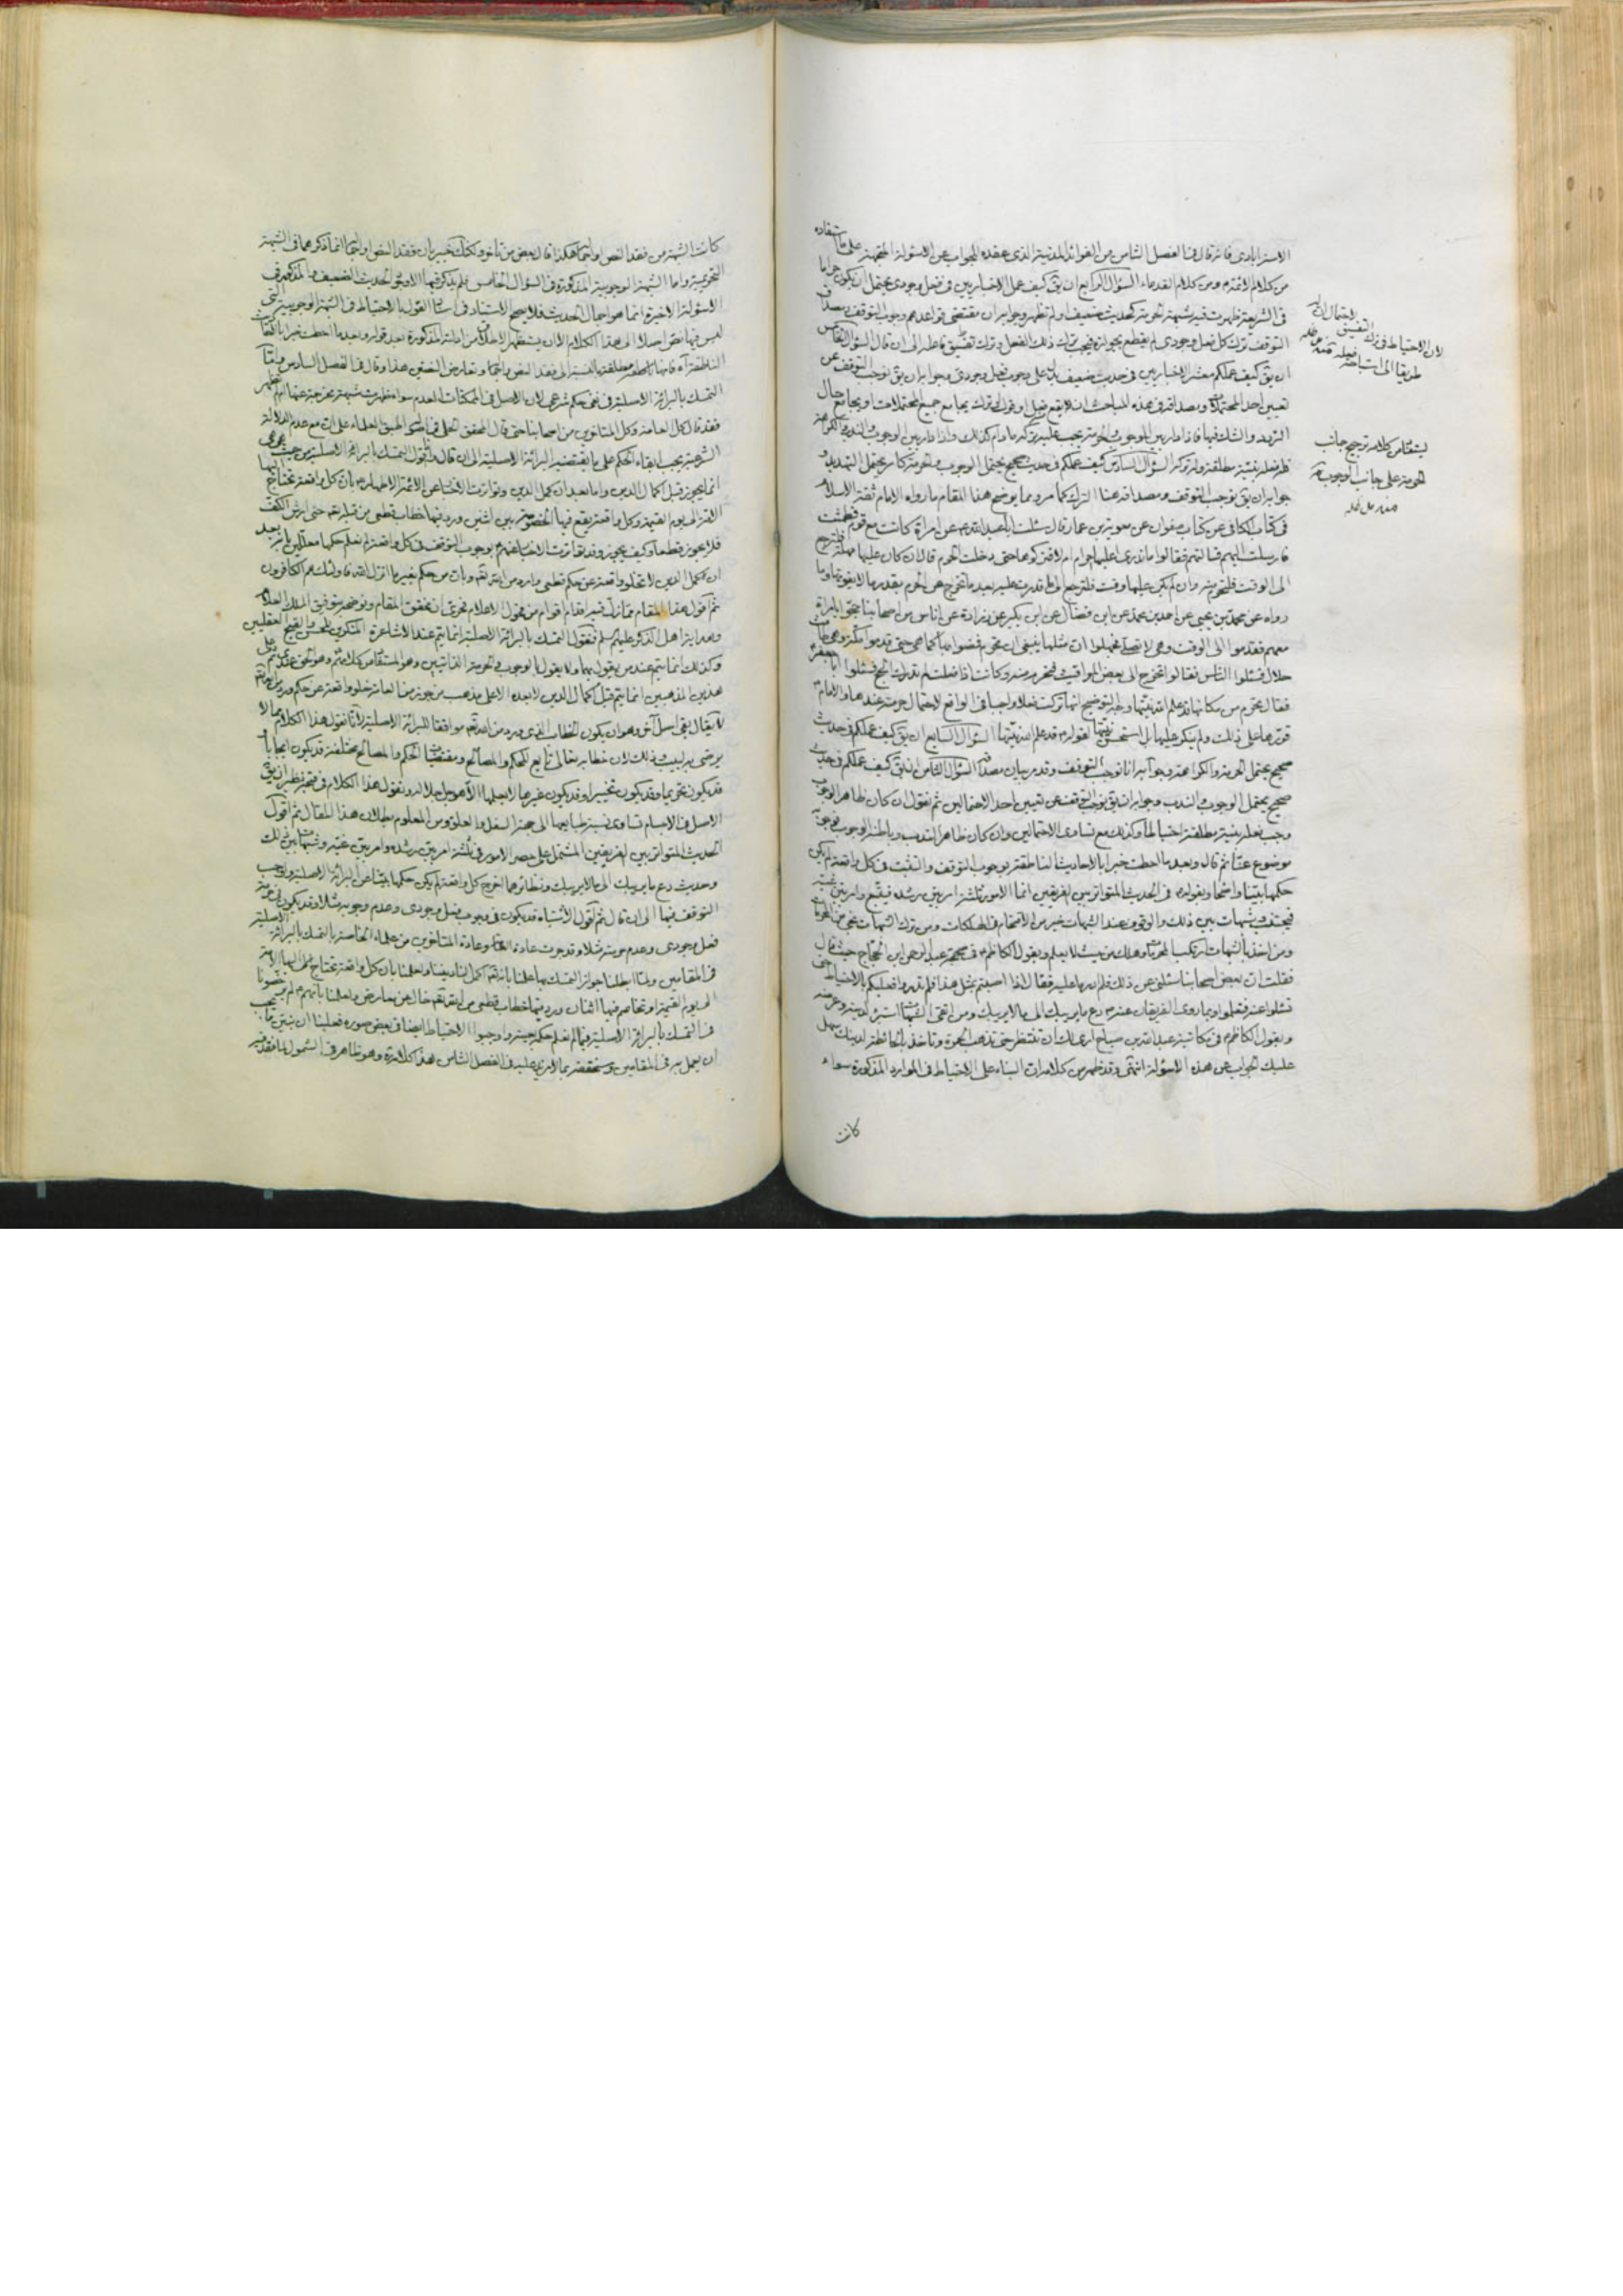 الاسترابادى فانه قال فى الفصل الثامن من الفوائد المدنية الذى عقده للجواب عن الاسئلة المتجهة على ما استفاده
من كلام الائمة ع ومن كلام القدماء السؤال الرابع ان يق كيف عمل الاخباريين فى فعل وجودى يحتمل ان يكون حراما
فى الشريعة ظهرت فيه شبهة الحرمة كحديث ضعيف او لم تظهر وجوابه ان مقتضى قواعدهم وجوب التوقف ومصداق
التوقف ترك كل فعل وجودى لم يقطع بجوازه فيجب ترك ذلك الفعل وترك تفسيق فاعله الى ان قال السؤال الخامس
ان يق كيف عملكم معشر الاخباريين فى حديث ضعيف يدل على وجوب فعل وجودى وجوابه ان يق نوجب التوقف عن
تعيين احد المحتملات ومصداقه فى هذه المباحث ان لا يقع فعل او قول او ترك يجامع جميع المحتملات او يجامع حال
التردد والشك فيها فاذا دار بين الوجوب والحرمة يجب عليه تركه ما دام كذلك واذا دار بين الوجوب والندب والكراهة
فله فعله بنية مطلقة وله تركه السؤال السادس كيف عملكم فى حديث صحيح يحتمل الوجوب والحرمة كامر يحتمل التهديد و
جوابه ان يق نوجب التوقف ومصداقه هنا الترك كما مر ومما يوضح هذا المقام ما رواه الامام ثقة الاسلام
فى كتاب الكافى عن صفوان عن معوية بن عمار قال سئلت ابا عبد الله ع عن امراة كانت مع قوم فطمثت
فارسلت اليهم فسالتهم فقالوا ما ندرى اعليها حرام ام لا فتركوها حتى دخلت الحرم قال ان كان عليها مهلة فلترجع
الى الوقت فلتحرم منه وان لم يكن عليها وقت فلترجع الى ما قدرت عليه بعد ما تخرج من الحرم بقدر ما لا يفوتها وما
رواه عن محمد بن يحيى عن احمد بن محمد عن ابن فضال عن ابن بكير عن زرارة عن اناس من اصحابنا حجوا بامراة
معهم فقدموا الى الوقت وهى لا تصلى فجهلوا ان مثلها ينبغى ان تحرم فمضوا بها كما هى حتى قدموا مكة وهى طامث
حلال فسئلوا الناس فقالوا تخرج الى بعض المواقيت فتحرم منه وكانت اذا فعلت لم تدرك الحج فسئلوا ابا جعفر ع
فقال تحرم من مكانها قد علم الله نيتها
قررها على ذلك ولم ينكر عليها بل استحسن نيتها لقوله ع قد علم الله نيتها السؤال السابع ان يق كيف عملكم فى حديث
صحيح يحتمل الحرمة والكراهة وجوابه انا نوجب التوقف وقد مر بيان مصداقه السؤال الثامن ان يق كيف عملكم فى حديث
صحيح يحتمل الوجوب والندب وجوابه ان يق نوجب التوقف عن تعيين احد الاحتمالين ثم نقول ان كان ظاهره الوجوب
وجب فعله بنية مطلقة احتياطا وكذلك مع تساوى الاحتمالين وان كان ظاهره الندب وباطنه الوجوب فوجوبه
موضوع عنا ثم قال وبعد ما احطت خبرا بالاحاديث الناطقة بوجوب التوقف والتثبت فى كل واقعة لم يكن
حكمها بينا واضحا وبقوله ع فى الحديث المتواتر بين الفريقين انما الامور ثلثة امر بين رشده فيتبع وامر بين غيه
فيجتنب وشبهات بين ذلك والوقوف عند الشبهات خير من الاقتحام فى الهلكات ومن ترك الشبهات نجى من المحرمات
ومن اخذ بالشبهات ارتكب المحرمات وهلك من حيث لا يعلم وبقول الكاظم ع فى صحيحة عبد الرحمن ابن الحجاج حيث قال
فقلت ان بعض اصحابنا سئلنى عن ذلك فلم ادر ما عليه فقال اذا اصبتم بمثل هذا فلم تدروا فعليكم بالاحتياط حتى
تسئلوا عنه فتعلموا وبما روى الفريقان عنه ص دع ما يريبك الى ما لا يريبك ومن اتقى الشبهات استبرء لدينه وعرضه
وبقول الكاظم ع فى مكاتبة عبد الله بن صباح ارى لك ان تنتظر حتى تذهب الحمرة وتاخذ بالحائطة لدينك يسهل
عليك الجواب عن هذه الاسئلة انتهى وقد ظهر من كلامه ان البناء على الاحتياط فى الموارد المذكورة سواء
كانت
لان الاحتياط فى ترك التفسيق
يستفاد من كلامه ترجيح جانب
الحرمة على جانب الوجوب
منه مد ظله
كانت الشبهة من فقد النص او اجماله هكذا قال بعض من تاخر ولكنك خبير بان فقد النص او اجماله انما ذكرهما فى الشبهة
التحريمية واما الشبهة الوجوبية المذكورة فى السؤال الخامس فلم يذكر فيها الا ورود الحديث الضعيف والمذكور فى
الاسئلة الاخيرة انما هو اجمال الحديث فلا يصح الاستناد
ليس فيها نص اصلا الى هذا الكلام
التمسك بالبرائة الاصلية فى نفى حكم شرعى لان الاصل فى الممكنات العدم سواء ظهرت شبهة مخرجة عنها ام لم تظهر
فقد قال كل العامة وكل المتاخرين من اصحابنا حتى قال المحقق الحلى
الشرعية يجب ابقاء الحكم على ما يقتضيه البرائة الاصلية الى ان قال واقول التمسك بالبرائة الاصلية من حيث هى هى
انما يجوز قبل اكمال الدين واما بعد ان كمل الدين وتواترت الاخبار عن الائمة الاطهار ع بان كل واقعة تحتاج اليها
الامة الى يوم القيمة وكل واقعة يقع فيها الخصومة بين اثنين ورد فيها خطاب قطعى من قبله تعالى حتى ارش الخدش
فلا يجوز قطعا وكيف يجوز وقد تواترت الاخبار عنهم ع بوجوب التوقف فى كل واقعة لم نعلم حكمها معللين بانه بعد
ان كمل الدين لا تخلو واقعة عن حكم قطعى وارد من الله تعالى وبان من حكم بغير ما انزل الله فاولئك هم الكافرون
ثم اقول هذا المقام مما زلت فيه اقدام اقوام من فحول الاعلام فحرى ان نحقق المقام ونوضحه بتوفيق الملك العلام
وهداية اهل الذكر عليهم السلم فنقول التمسك بالبرائة الاصلية انما يتم عند الاشاعرة المنكرين للحسن والقبح العقليين
وكذلك انما يتم عند من يقول بهما ولا يقول بالوجوب والحرمة الذاتيين وهو المستفاد من كلامهم ع وهو الحق عندى ثم على
هذين المذهبين انما يتم قبل اكمال الدين لا بعده الا على مذهب من جوز من العامة خلو واقعة عن حكم
لا يقال بقى اصل آخر وهو ان يكون الخطاب الذى ورد من الله تعالى موافقا للبرائة الاصلية لانا نقول هذا الكلام مما لا
يرضى به لبيب وذلك لان خطابه تعالى تابع للحكم والمصالح ومقتضيات الحكم والمصالح مختلفة قد يكون ايجابا
قد يكون تحريما وقد يكون تخييرا وقد يكون غيرها لا يعلمها الا هو جل جلاله ونقول هذا الكلام فى قبح نظير ان يق
الاصل فى الاجسام تساوى نسبة طبايعها الى جهة السفل والعلو ومن المعلوم بطلان هذا المقال ثم اقول
الحديث المتواتر بين الفريقين المشتمل على حصر الامور فى ثلثة امر بين رشده وامر بين غيه وشبهات بين ذلك
وحديث دع ما يريبك الى ما لا يريبك ونظائرهما اخرج كل واقعة لم يكن حكمها بينا عن البرائة الاصلية واوجب
التوقف فيها الى ان قال ثم اقول الاشتباه قد يكون فى وجوب فعل وجودى وعدم وجوبه مثلا وقد يكون فى حرمة
فعل وجودى وعدم حرمته مثلا وقد جرت عادة العامة وعادة المتاخرين من علماء الخاصة بالتمسك بالبرائة الاصلية
فى المقامين ولما ابطلنا جواز التمسك بها لعلمنا بانه تعالى اكمل لنا ديننا ولعلمنا بان كل واقعة تحتاج اليها الامة
الى يوم القيمة او تخاصم فيها اثنان ورد فيها خطاب قطعى من الله تعالى خال عن معارض
فى التمسك بالبرائة الاصلية فيما لم نعلم حكمه بعينه واوجبوا الاحتياط ايضا فى بعض صوره فعلينا ان نبين ما يجب
ان يعمل به فى المقامين وسنحققه بما لا مزيد عليه فى الفصل الثامن هذا كلامه وهو ظاهر فى الشمول لما فقد فيه